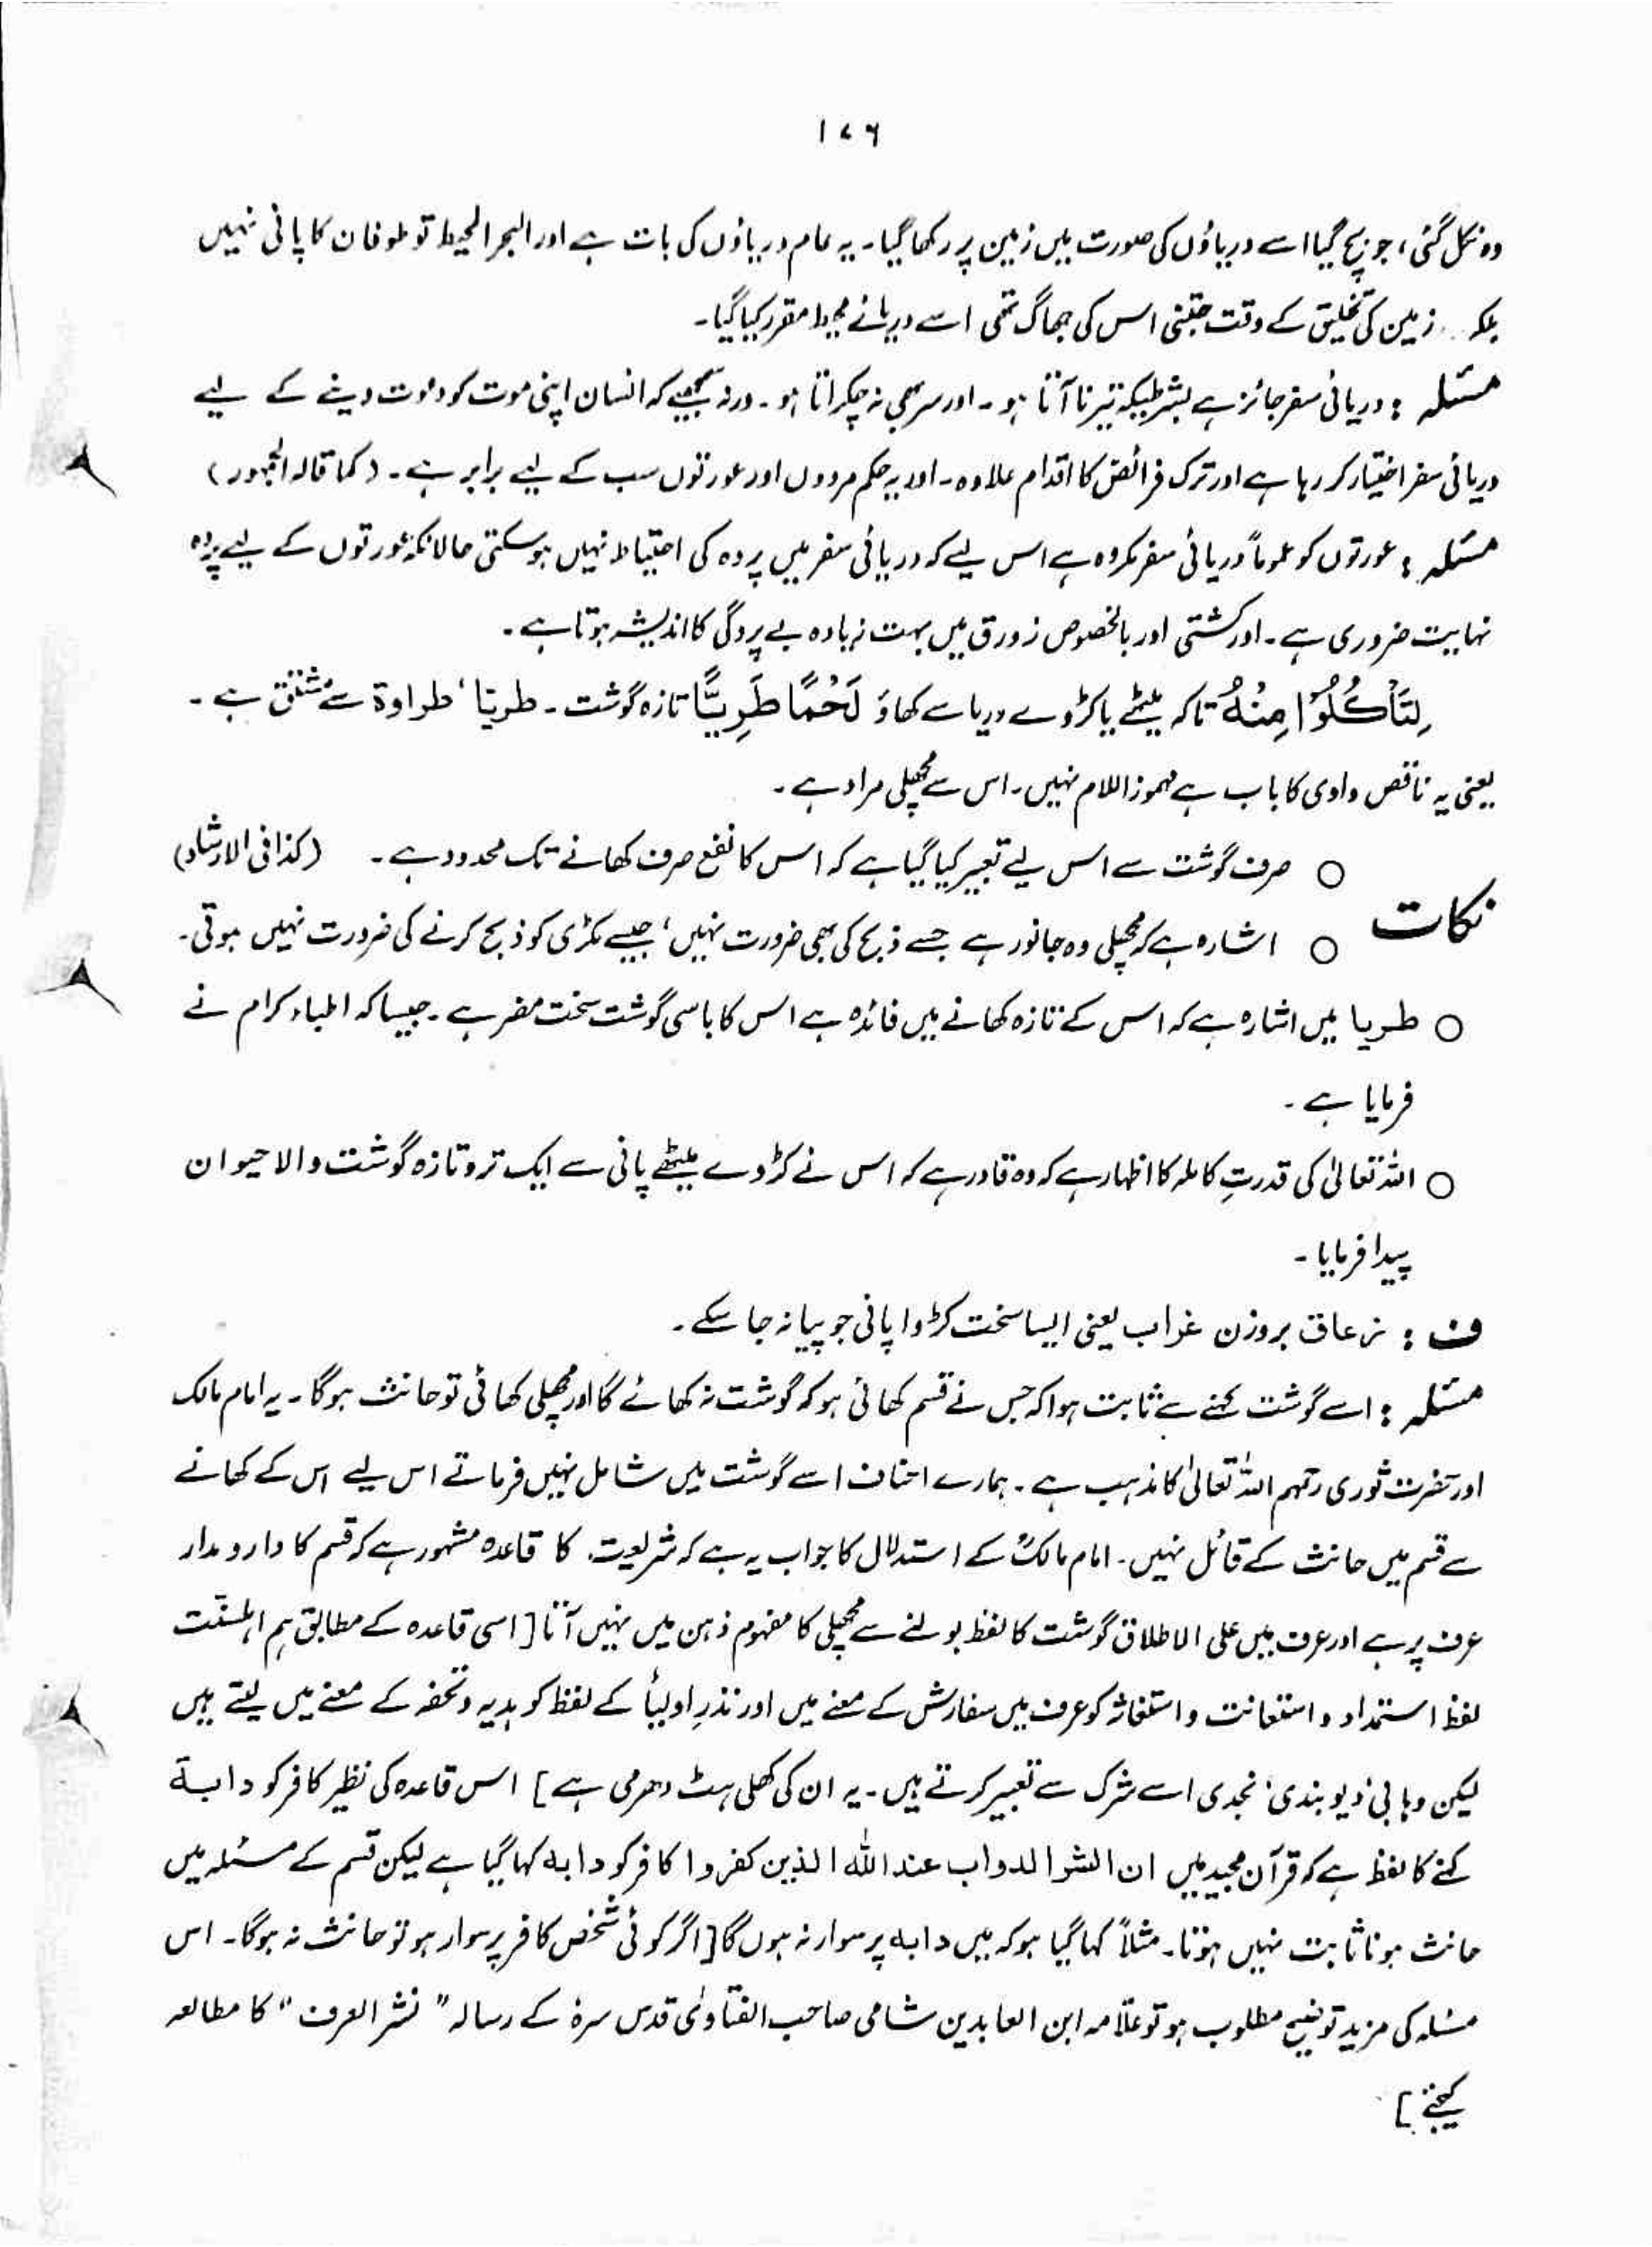 ۱۷۶
وہ نکل گئی، جو بچ گیا اسے دریاؤں کی صورت میں زمین پر رکھا گیا۔ یہ عام دریاؤں کی بات ہے اور البحر المحیط تو طوفان کا پانی نہیں
بلکہ زمین کی تخلیق کے وقت جتنی اس کی جھاگ تھی اسے دریائے محیط مقرر کیا گیا۔
مسئلہ : دریائی سفر جائز ہے بشرطیکہ تیرنا آتا ہو۔ اور سر بھی نہ چکراتا ہو۔ ورنہ سمجھیے کہ انسان اپنی موت کو دعوت دینے کے لیے
دریائی سفر اختیار کر رہا ہے اور ترک فرائض کا اقدام علاوہ۔ اور یہ حکم مردوں اور عورتوں سب کے لیے برابر ہے۔ (کما قالہ الجمہور)
مسئلہ : عورتوں کو عموماً دریائی سفر مکروہ ہے اس لیے کہ دریائی سفر میں پردہ کی احتیاط نہیں ہو سکتی حالانکہ عورتوں کے لیے پردہ
نہایت ضروری ہے۔ اور کشتی اور بالخصوص زورق میں بہت زیادہ بے پردگی کا اندیشہ ہوتا ہے۔
لِتَأْكُلُوْا مِنْهُ تاکہ میٹھے یا کڑوے دریا سے کھاؤ لَحْمًا طَرِيًّا تازہ گوشت۔ طریًا، طراوۃ سے مشتق ہے۔
یعنی یہ ناقص واوی کا باب ہے مہموز اللام نہیں۔ اس سے مچھلی مراد ہے۔
نکات ○ صرف گوشت سے اس لیے تعبیر کیا گیا ہے کہ اس کا نفع صرف کھانے تک محدود ہے۔ (کذا فی الارشاد)
○ اشارہ ہے کہ مچھلی وہ جانور ہے جسے ذبح کی بھی ضرورت نہیں، جیسے مکڑی کو ذبح کرنے کی ضرورت نہیں ہوتی۔
○ طریا میں اشارہ ہے کہ اس کے تازہ کھانے میں فائدہ ہے اس کا باسی گوشت سخت مضر ہے۔ جیسا کہ اطباء کرام نے
فرمایا ہے۔
○ اللہ تعالیٰ کی قدرتِ کاملہ کا اظہار ہے کہ وہ قادر ہے کہ اس نے کڑوے میٹھے پانی سے ایک تروتازہ گوشت والا حیوان
پیدا فرمایا۔
ف : زعاق بروزن غراب یعنی ایسا سخت کڑوا پانی جو پیا نہ جا سکے۔
مسئلہ : اسے گوشت کہنے سے ثابت ہوا کہ جس نے قسم کھائی ہو کہ گوشت نہ کھائے گا اور مچھلی کھائی تو حانث ہوگا۔ یہ امام مالک
اور حضرت ثوری رحمہم اللہ تعالیٰ کا مذہب ہے۔ ہمارے احناف اسے گوشت میں شامل نہیں فرماتے اس لیے اس کے کھانے
سے قسم میں حانث کے قائل نہیں۔ امام مالکؒ کے استدلال کا جواب یہ ہے کہ شریعت کا قاعدہ مشہور ہے کہ قسم کا دارومدار
عرف پر ہے اور عرف میں علی الاطلاق گوشت کا لفظ بولنے سے مچھلی کا مفہوم ذہن میں نہیں آتا [اسی قاعدہ کے مطابق ہم اہلسنّت
لفظ استمداد و استعانت و استغاثہ کو عرف میں سفارش کے معنے میں اور نذرِ اولیأ کے لفظ کو ہدیہ و تحفہ کے معنے میں لیتے ہیں
لیکن وہابی دیوبندی نجدی اسے شرک سے تعبیر کرتے ہیں۔ یہ ان کی کھلی ہٹ دھرمی ہے] اس قاعدہ کی نظیر کافر کو دابة
کہنے کا لفظ ہے کہ قرآن مجید میں ان الشر الدواب عند اللہ الذین کفروا کافر کو دابہ کہا گیا ہے لیکن قسم کے مسئلہ میں
حانث ہونا ثابت نہیں ہوتا۔ مثلاً کہا گیا ہو کہ میں دابہ پر سوار نہ ہوں گا [اگر کوئی شخص کافر پر سوار ہو تو حانث نہ ہوگا۔ اس
مسئلہ کی مزید توضیح مطلوب ہو تو علّامہ ابن العابدین شامی صاحب الفتاوٰی قدس سرہٗ کے رسالہ "نشر العرف" کا مطالعہ
کیجئے]